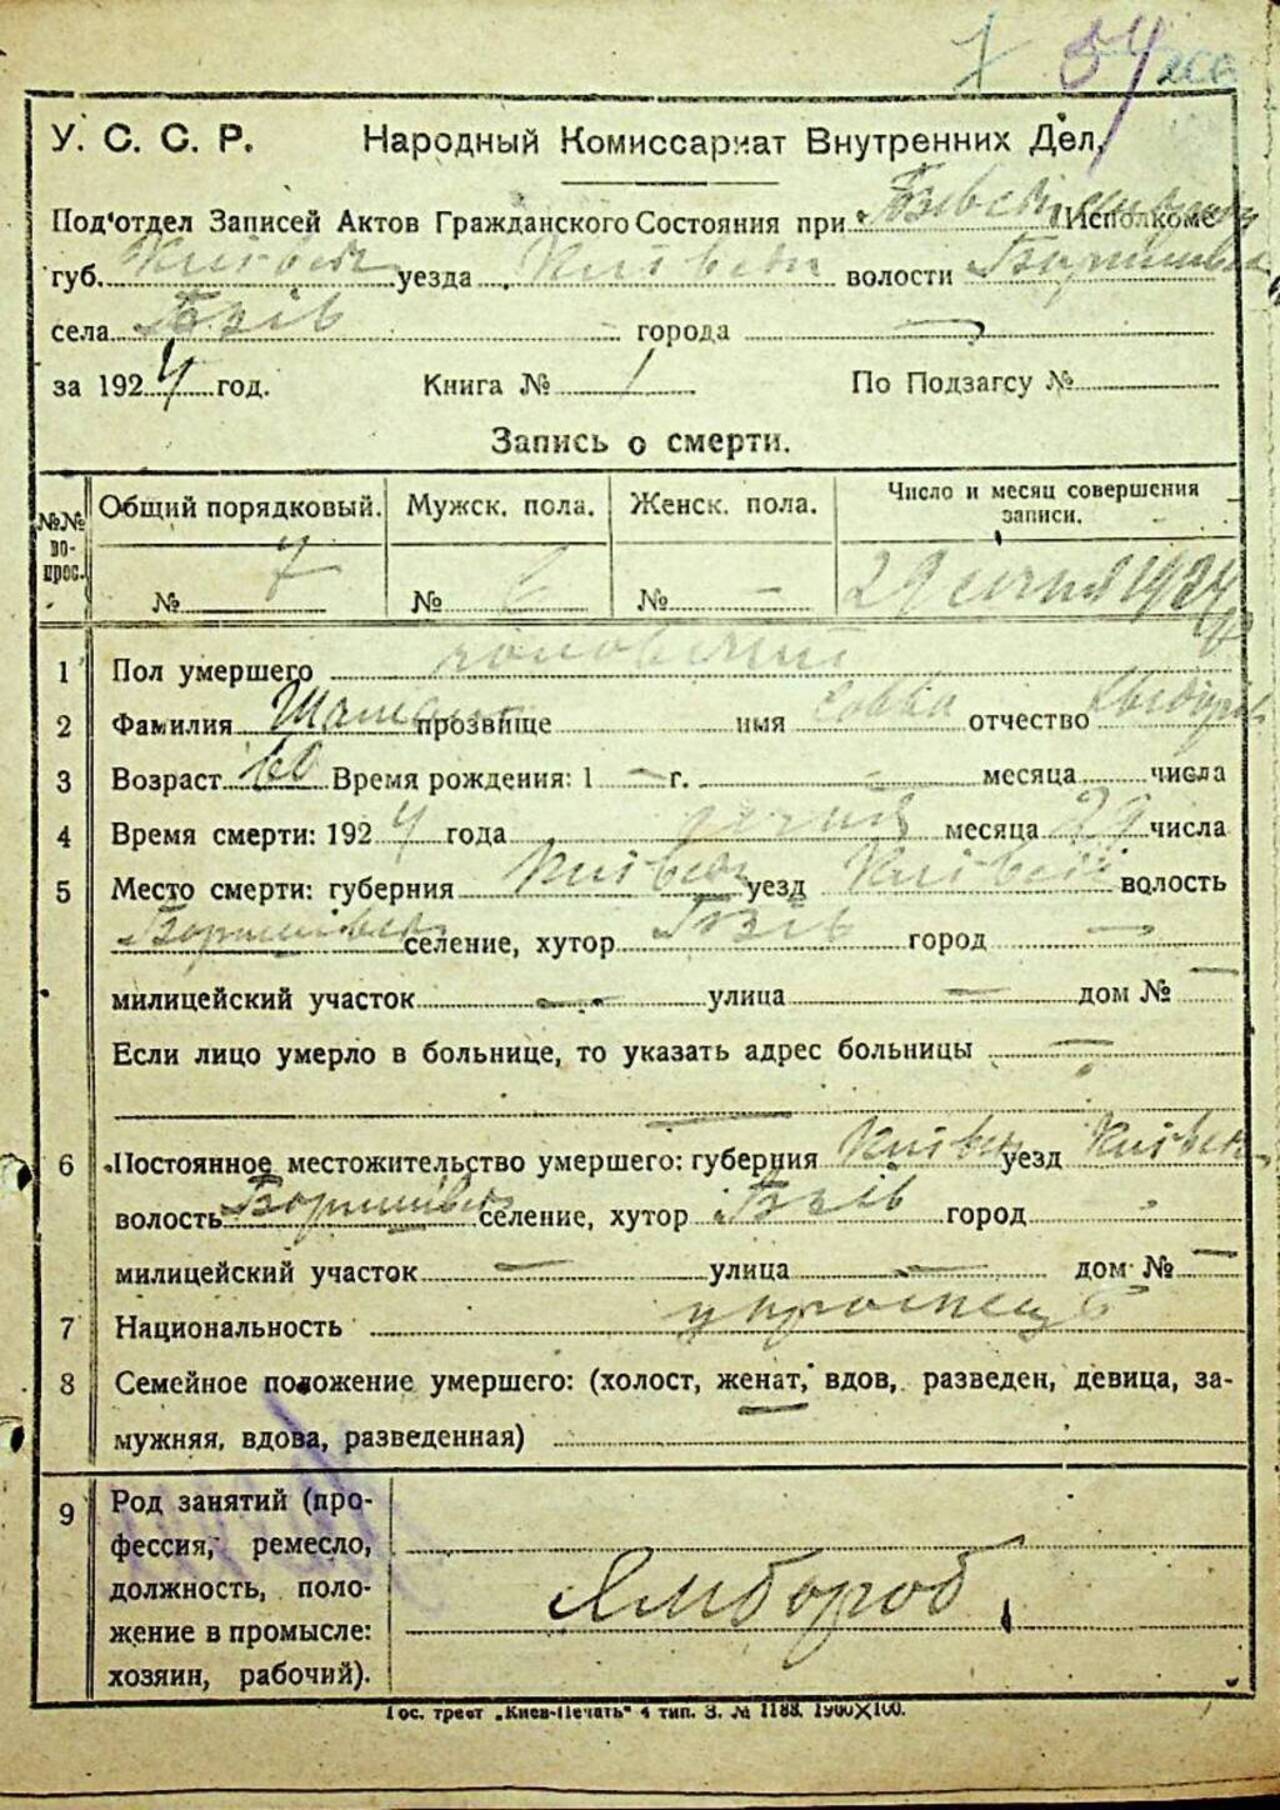 7 54
У. С. С. Р. Народный Комиссариат Внутренних Дел,
Под'отдел Записей Актов Гражданского Состояния при Исполкоме
губ. Київськ уезда Київськ волости
села Бзів города —
за 1924 год. Книга № 1 По Подзагсу №
Запись о смерти.
№№ во- прос. Общий порядковый. Мужск. пола. Женск. пола. Число и месяц совершения записи.
№ 7 № 6 № — 29 січня 1924 р
1 Пол умершего чоловечий
2 Фамилия прозвище имя Савка отчество
3 Возраст 60 Время рождения: 1 — г. — месяца числа
4 Время смерти: 1924 года січня месяца 29 числа
5 Место смерти: губерния Київськ уезд Київськ волость
селение, хутор Бзів город —
милицейский участок — улица — дом № —
Если лицо умерло в больнице, то указать адрес больницы —
6 Постоянное местожительство умершего: губерния Київськ уезд Київськ
волость селение, хутор Бзів город -
милицейский участок — улица — дом № —
7 Национальность українець
8 Семейное положение умершего: (холост, женат, вдов, разведен, девица, за-
мужняя, вдова, разведенная)
9 Род занятий (про-
фессия, ремесло,
должность, поло-
жение в промысле:
хозяин, рабочий).
Хлибороб
Гос. трест „Киев-Печать" 4 тип. З. № 1188. 1900X100.